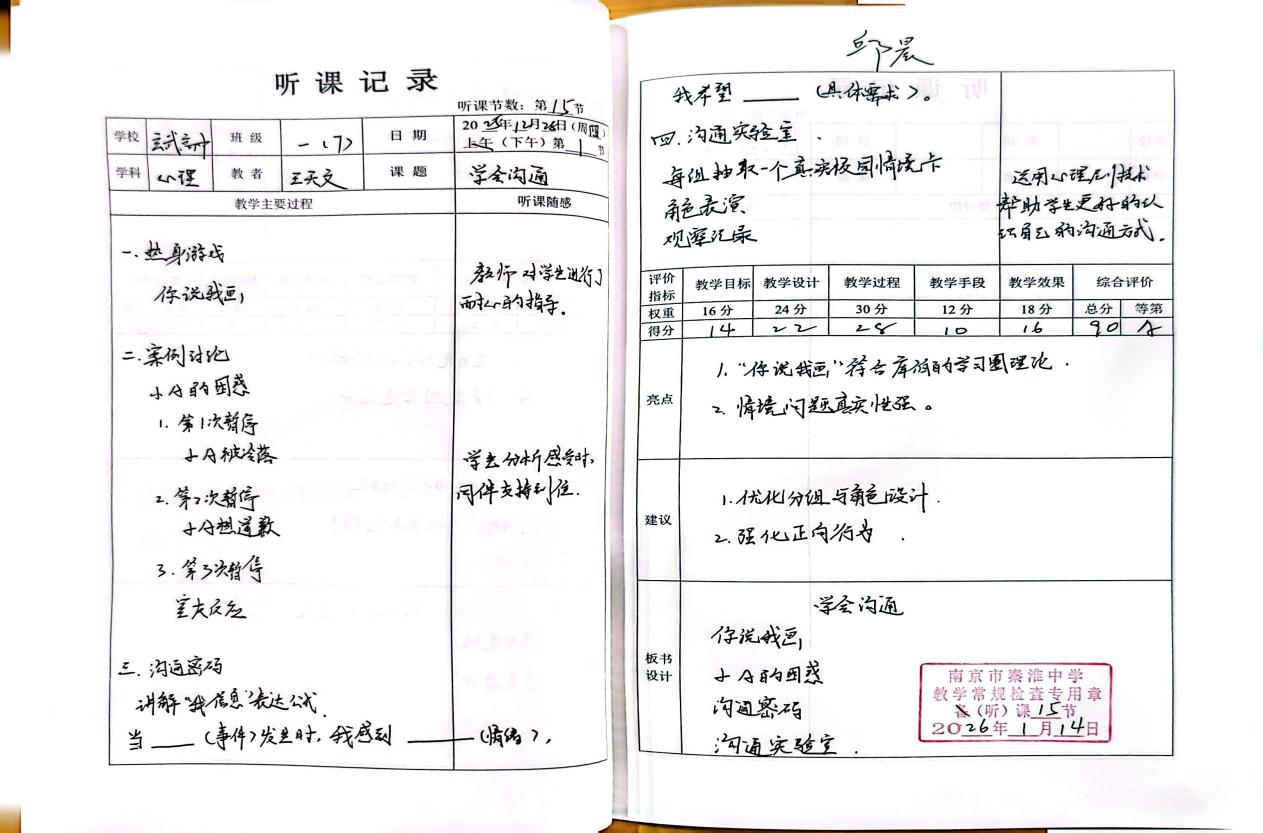 听课记录
听课节数：第15节
学校 班级 一（7） 日期 2025年12月26日（周四）
上午（下午）第1节
学科 心理 教者 王天文 课题 学会沟通
教学主要过程 听课随感
一.热身游戏
你说我画
教师对学生进行了
耐心的指导。
二.案例讨论
小A的困惑
1.第1次暂停
小A被冷落
学生分析感受时，
同伴支持到位.
2.第2次暂停
小A想道歉
3.第3次暂停
室友反应
三.沟通密码
讲解“我信息”表达公式.
当____（事件）发生时，我感到____（情绪），
邱晨
我希望____（具体需求）。
四.沟通实验室.
每组抽取一个真实校园情境卡
角色表演
观察记录
运用心理剧技术
帮助学生更好的认
识自己的沟通方式.
评价指标 教学目标 教学设计 教学过程 教学手段 教学效果 综合评价
权重 16分 24分 30分 12分 18分 总分 等第
得分 14 22 28 10 16 90 A
亮点
1.“你说我画”符合库伯的学习圈理论.
2.情境问题真实性强。
建议
1.优化分组与角色设计.
2.强化正向行为.
板书设计
学会沟通
你说我画
小A的困惑
沟通密码
沟通实验室.
南京市秦淮中学
教学常规检查专用章
备（听）课15节
2026年1月14日